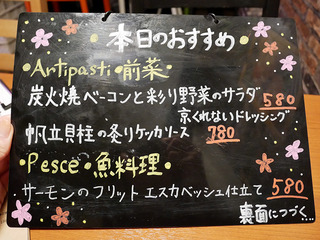 本日のおすすめ
・Antipasti・前菜・
炭火焼ベーコンと彩り野菜のサラダ 580
京くれないドレッシング
帆立貝柱の炙りケッカソース 780
・Pesce・魚料理・
サーモンのフリット エスカベッシュ仕立て 580
裏面につづく…